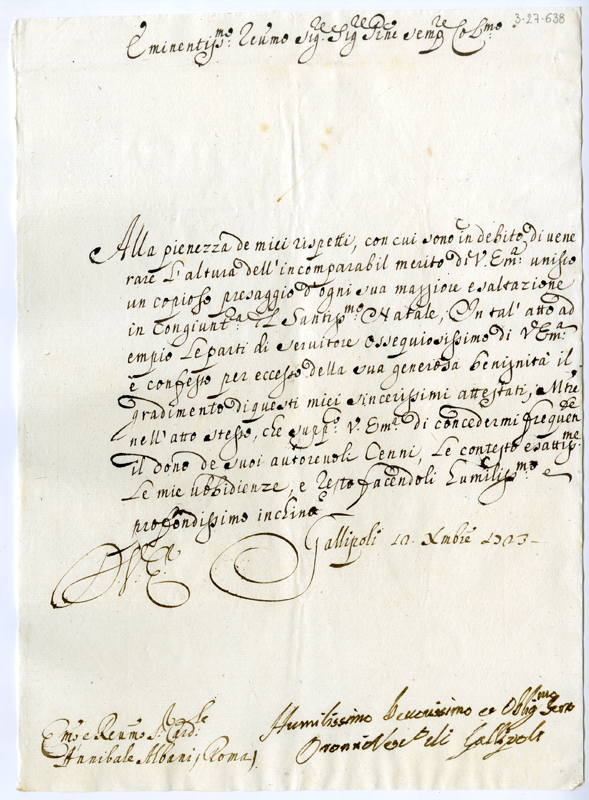 3-27-638
Eminentiss.mo Reũmo Sig.re Sig.re Pñe Semp.re Col.mo
Alla pienezza de miei rispetti, con cui sono in debito di vene
rare l'altura dell'incomparabil merito di V. Em.a unisco
un copioso presaggio d'ogni sua maggiore esaltazione
in Congiunt.a del Santiss.mo Natale, In tal' atto ad
empio le parti di servitore ossequiosissimo di V. Em.a
e confesso per eccesso della sua generosa benignità il
gradimento di questi miei sincerissimi attestati, Mtre
nell'atto stesso, che supp.o V. Em.a di concedermi frequen.te
il dono de suoi autorevoli Cenni, Le contesto esattiss.me
Le mie ubbidienze, e resto facendoli humiliss.mo e
profondissimo inchino
D. V. Em.a Gallipoli 12 Xmbre 1723
Humilissimo Devotissimo et Oblig.mo Ser.re
Vesc.o di Gallipoli
Em.o e Reũmo S.r Card.le
Annibale Albani (Roma)